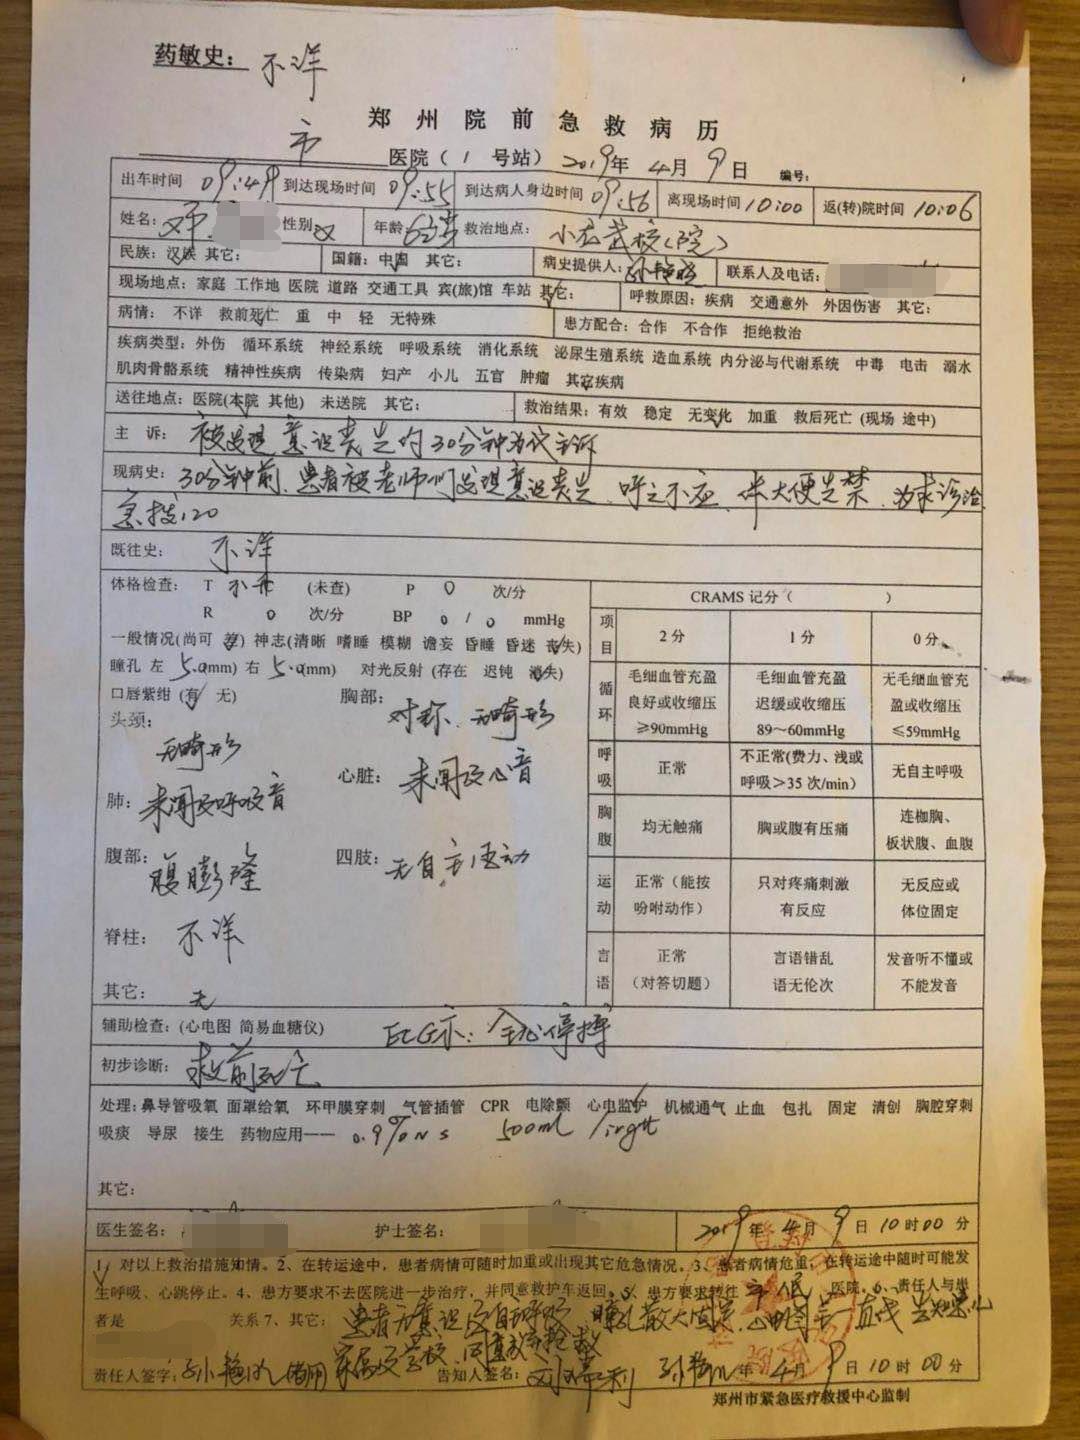 药敏史： 不详
郑州院前急救病历
市 医院（ 1 号站） 2019年 4月 9日 编号：
出车时间 09:49 到达现场时间 09:55 到达病人身边时间 09:56 离现场时间 10:00 返(转)院时间 10:06
姓名： 性别 女 年龄 救治地点：
民族：汉族 其它： 国籍：中国 其它： 病史提供人： 联系人及电话：
现场地点：家庭 工作地 医院 道路 交通工具 宾(旅)馆 车站 其它： 呼救原因：疾病 交通意外 外因伤害 其它：
病情： 不详 救前死亡 重 中 轻 无特殊 患方配合：合作 不合作 拒绝救治
疾病类型：外伤 循环系统 神经系统 呼吸系统 消化系统 泌尿生殖系统 造血系统 内分泌与代谢系统 中毒 电击 溺水
肌肉骨骼系统 精神性疾病 传染病 妇产 小儿 五官 肿瘤 其它疾病
送往地点：医院(本院 其他) 未送院 其它： 救治结果：有效 稳定 无变化 加重 救后死亡 (现场 途中)
主 诉： 被发现意识丧失约30分钟为代主诉
现病史： 30分钟前，患者被老师们发现意识丧失，呼之不应，伴大便失禁，为求诊治
急拨120
既往史： 不详
体格检查： T (未查) P 0 次/分 CRAMS 记分（ ）
R 0 次/分 BP 0 / 0 mmHg 项目 2 分 1 分 0 分
一般情况(尚可 差) 神志(清晰 嗜睡 模糊 谵妄 昏睡 昏迷 丧失)
瞳孔 左 5.0(mm) 右 5.0(mm) 对光反射 (存在 迟钝 消失) 循环 毛细血管充盈良好或收缩压≥90mmHg 毛细血管充盈迟缓或收缩压89～60mmHg 无毛细血管充盈或收缩压≤59mmHg
口唇紫绀 (有 无) 胸部： 对称、无畸形
头颈： 无畸形 呼吸 正常 不正常(费力、浅或呼吸＞35 次/min) 无自主呼吸
肺： 未闻及呼吸音 心脏： 未闻及心音 胸腹 均无触痛 胸或腹有压痛 连枷胸、板状腹、血腹
腹部： 腹膨隆 四肢： 无自主活动 运动 正常（能按吩咐动作） 只对疼痛刺激有反应 无反应或体位固定
脊柱： 不详 言语 正常（对答切题） 言语错乱语无伦次 发音听不懂或不能发音
其它： 无
辅助检查：(心电图 简易血糖仪) ECG示：全心停搏
初步诊断： 救前死亡
处理：鼻导管吸氧 面罩给氧 环甲膜穿刺 气管插管 CPR 电除颤 心电监护 机械通气 止血 包扎 固定 清创 胸腔穿刺
吸痰 导尿 接生 药物应用—— 0.9%NS 500ml
其它：
医生签名： 护士签名： 2019年 4月 9日 10时00分
1、对以上救治措施知情。2、在转运途中，患者病情可随时加重或出现其它危急情况。3、患者病情危重，在转运途中随时可能发
生呼吸、心跳停止。4、患方要求不去医院进一步治疗，并同意救护车返回。5、患方要求转往 医院。6、责任人与患
者是 关系 7、其它： 患者无意识及自主呼吸，瞳孔散大固定，心电图呈一直线
家属及学校
责任人签字： 告知人签名： 年 4月 9日 10时 00分
郑州市紧急医疗救援中心监制